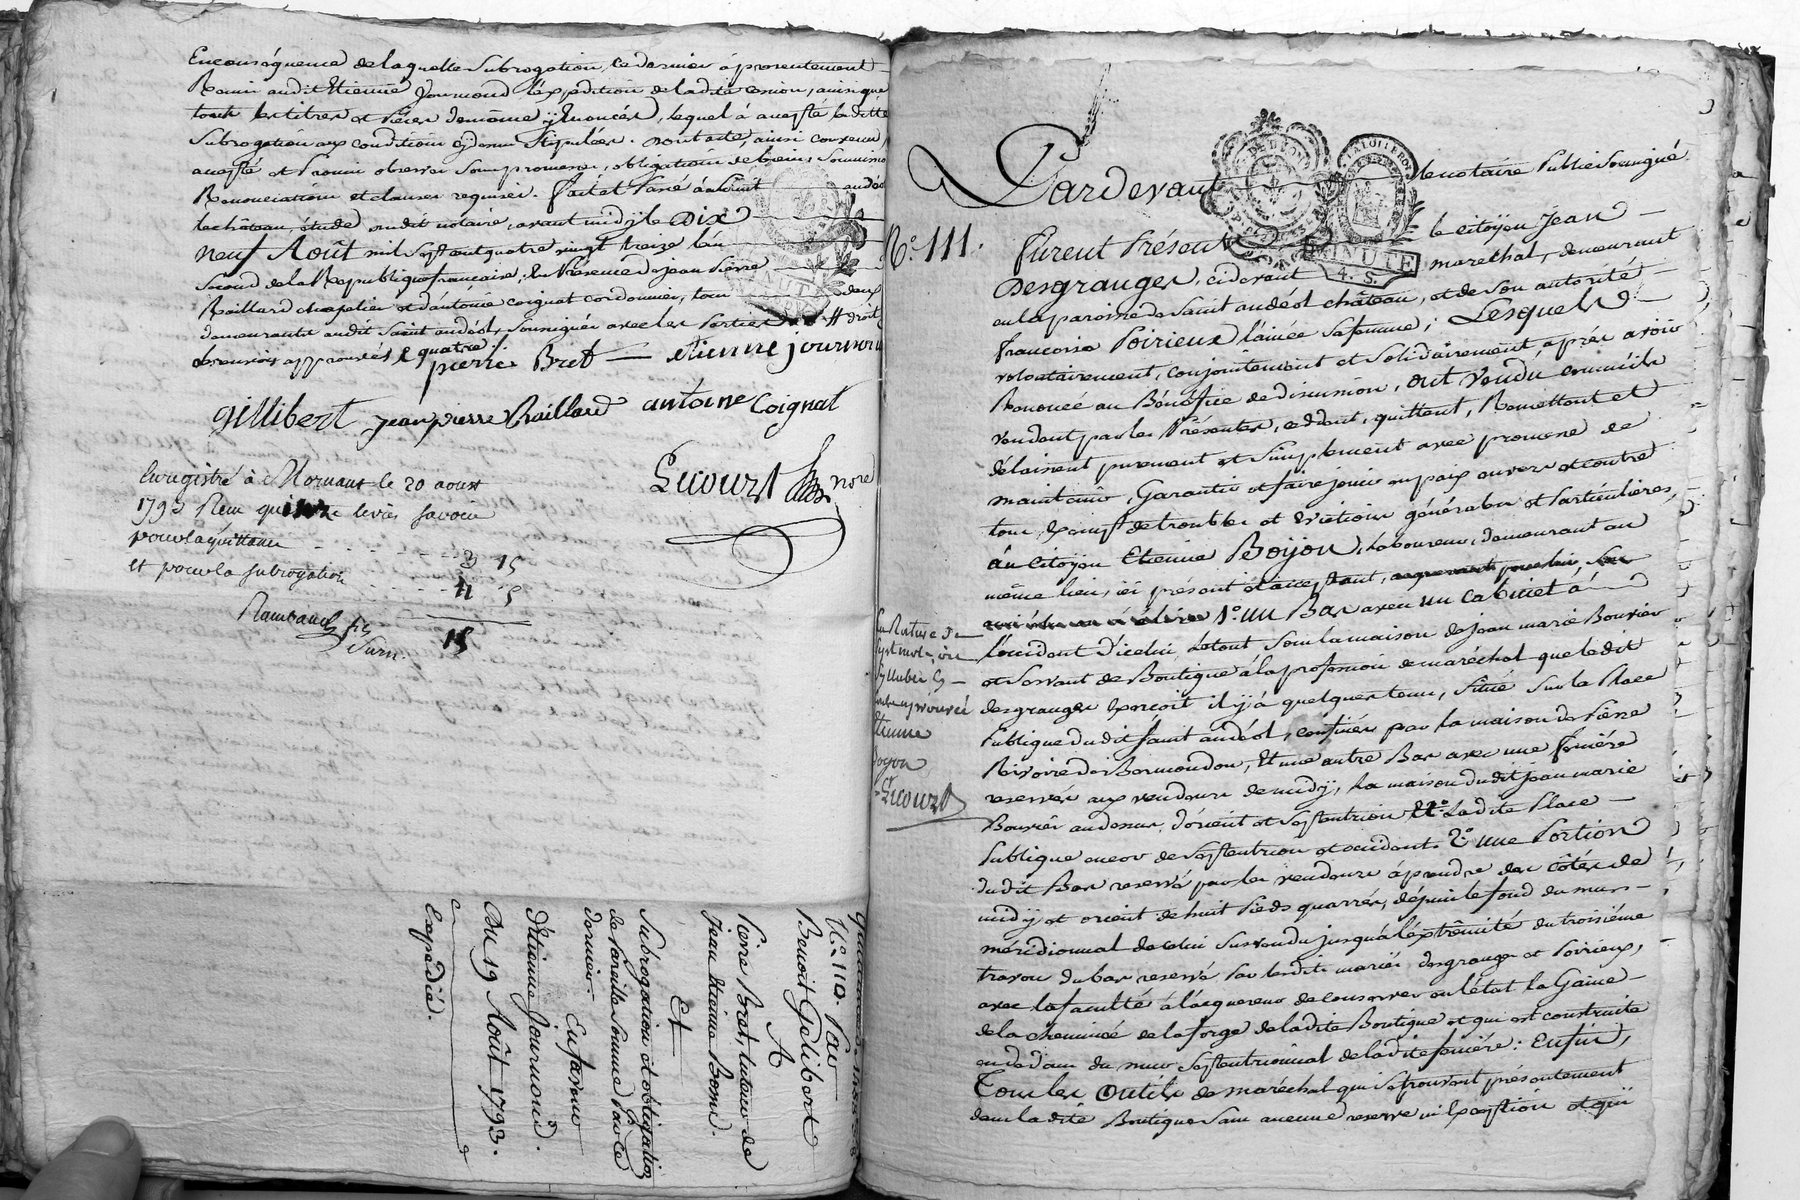 En conséquence de laquelle subrogation, ce dernier a présentement
Remis audit Etienne Journoud l'expédition de ladite cession, ainsi que
tous les titres et pièces d'emôme y Enoncés, lequel a accepté laditte
subrogation aux conditions cydessus stipulées. dont acte, ainsi convenu,
accepté et Promis observer sous promesses, obligations de biens soumissions
Renonciations et clauses requises. fait et Passé à Saint andéol
le château, étude dudit notaire, avant midy le Dix
neuf Août mil sept cent quatre vingt treize l'an
second de la République française; En Présence de jean Pierre
Raillard chapelier et d'antoine coignat cordonnier, tous deux
demeurants audit Saint andéol, soussignés avec les Parties
les renvois approuvés quatre
pierre Bret — etienne journoud
gillibert jean pierre Raillard antoine Coignat
Lecourt nore
Enregistré à Mornant le 20 aoust
1793 Reçu quinze livres savoir
pour la quittance 3 15
et pour la subrogation 11 5
Rambaud fils 15
Surn.
N.º 110. Par
Benoit Gelibert
A
Pierre Bret, tuteur de
Jean Etienne Bonne.
Et
Subrogation et obligation
de Pareille Somme Par Ce
dernier
En faveur
d'Etienne Journoud.
Du 19 Août 1793.
Expedié.
Pardevant le notaire Public soussigné
N.º 111. furent Présens le citoyen Jean
Desgranges, cidevant marechal, demeurant
en la paroisse de Saint andéol château, et de son autorité
françoise Poirieux l'ainée sa femme; Lesquels
volontairement, conjointement et solidairement, après avoir
Renoncé au Bénéfice de discussion, ont vendu comme ils
vendent par les Présentes, cèdent, quittent, Remettent et
délaissent purement et simplement avec promesse de
maintenir, Garantir et faire jouir en paix envers et contre
tous, Exempt de troubles et évictions générales et Particulières,
au Citoyen Etienne Boyjon, Laboureur, demeurant au
même lieu, ici présent et acceptant,
1.º un Bas avec un cabinet à
l'occident d'icelui, Le tout sous la maison de jean marie Bouvier
et servant de Boutique à la profession de maréchal que ledit
desgranges Exerçoit il y a quelques tems, Situé Sur la Place
Publique dudit Saint andéol, confinés par la maison de Pierre
Rivoire de Bormondon, Et une autre Bas avec une feniére
reservés aux vendeurs de midy, la maison dudit jean marie
Bouvier au dessus, d'orient et Septentrion Et Ladite Place
Publique encor de Septentrion et occident. 2.º une Portion
dudit Bas reservé par les vendeurs à prendre des côtés de
midy et orient de huit Pieds quarrés, dépuis le fond du mur
méridionnal de celui susvendu jusqu'à l'extrêmité du troisiéme
travon du bas reservé Par lesdits mariés desgranges et Poirieux,
avec la faculté à l'acquereur de conserver en l'état la Gaine
de la cheminée de la forge de ladite Boutique et qui est construite
en dedans du mur septentrionnal de ladite feniére: Enfin,
Tous les Outils de maréchal qui se trouvent présentement
dans la dite Boutique sans aucune reserve ni Exception et qui
La Rature de
sept mots, une
syllabe cy
contre approuvé
Etienne
Lecourt